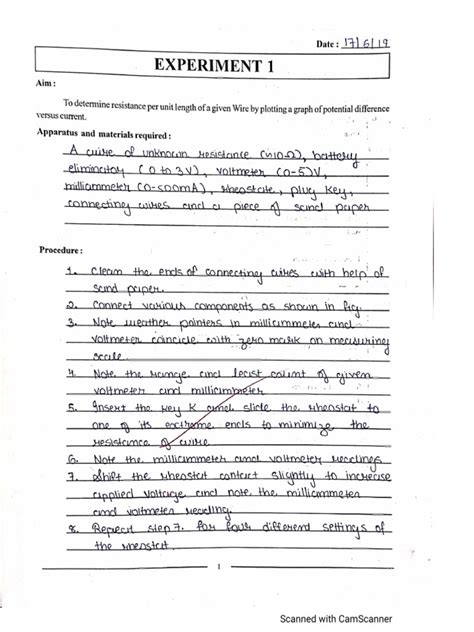 Date : 17/6/19
EXPERIMENT 1
Aim :
To determine resistance per unit length of a given Wire by plotting a graph of potential difference
versus current.
Apparatus and materials required :
A wire of unknown resistance (~10Ω), battery
eliminator (0 to 3V), voltmeter (0-5)V,
milliammeter (0-500mA), rheostate, plug key,
connecting wires and a piece of sand paper
Procedure :
1. Clean the ends of connecting wires with help of
sand paper.
2. Connect various components as shown in fig.
3. Note weather pointers in milliammeter and
voltmeter coincide with zero mark on measuring
scale.
4. Note the range and least count of given
voltmeter and milliammeter
5. Insert the key K and slide the rheostat to
one of its extreme ends to minimize the
resistance of wire
6. Note the milliammeter and voltmeter readings
7. Shift the rheostat contact slightly to increase
applied voltage and note the milliammeter
and voltmeter reading.
8. Repeat step 7. for four different settings of
the rheostat.
1
Scanned with CamScanner